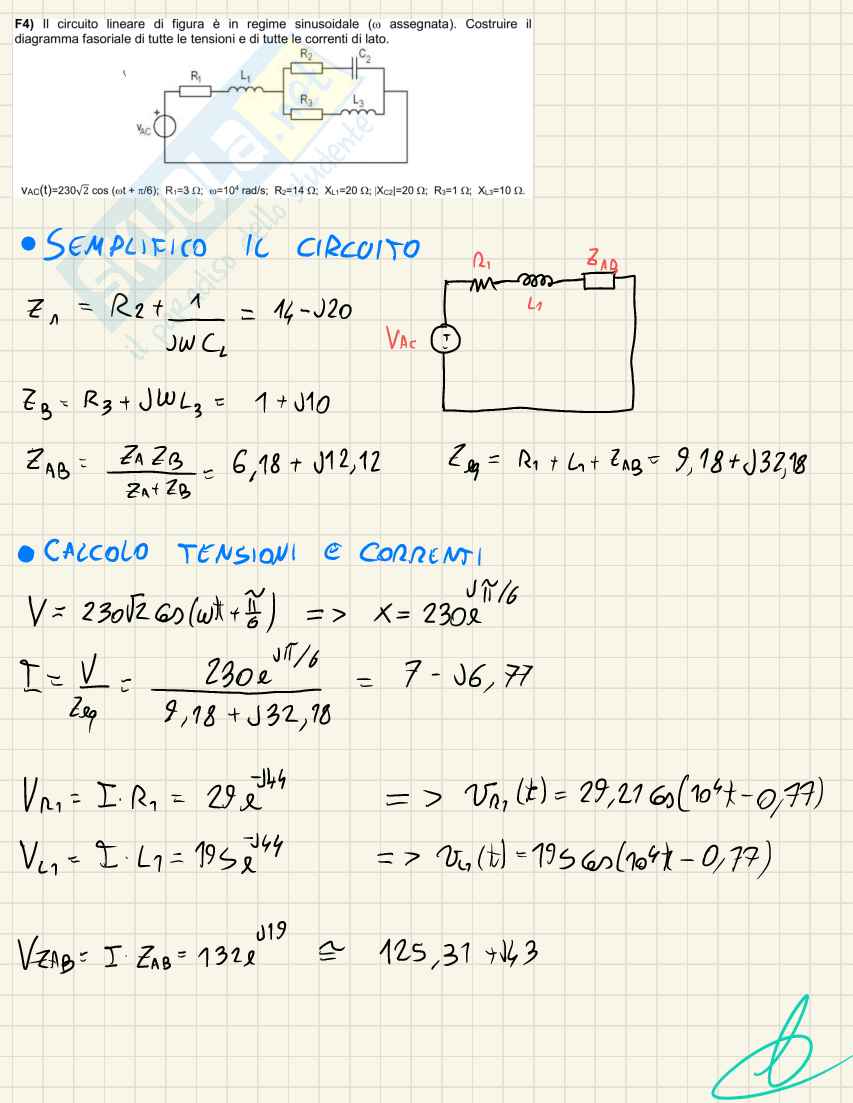 F4) Il circuito lineare di figura è in regime sinusoidale (ω assegnata). Costruire il
diagramma fasoriale di tutte le tensioni e di tutte le correnti di lato.
R₂ C₂
R₁ L₁
R₃ L₃
+
VAC
SKUOLA.net
il paradiso dello studente
VAC(t)=230√2 cos (ωt + π/6); R₁=3 Ω; ω=10⁴ rad/s; R₂=14 Ω; XL1=20 Ω; |XC2|=20 Ω; R₃=1 Ω; XL3=10 Ω.
• SEMPLIFICO IL CIRCUITO
R₁ L₁ ZAB
VAC
Z_A = R₂ + 1/(jωC₂) = 14 - J20
Z_B = R₃ + JωL₃ = 1 + J10
Z_AB = Z_A Z_B/(Z_A + Z_B) = 6,18 + J12,12 Zeq = R₁ + L₁ + Z_AB = 9,18 + J32,18
• CALCOLO TENSIONI E CORRENTI
V = 230√2 cos(ωt + π/6) => X = 230e^(Jπ/6)
I = V/Zeq = 230e^(Jπ/6)/(9,18 + J32,18) = 7 - J6,77
V_R1 = I · R₁ = 29e^(-J44) => v_R1(t) = 29,21 cos(10⁴t - 0,77)
V_L1 = I · L₁ = 195e^(-J44) => v_L1(t) = 195 cos(10⁴t - 0,77)
V_ZAB = I · Z_AB = 132e^(J19) ≅ 125,31 + J43